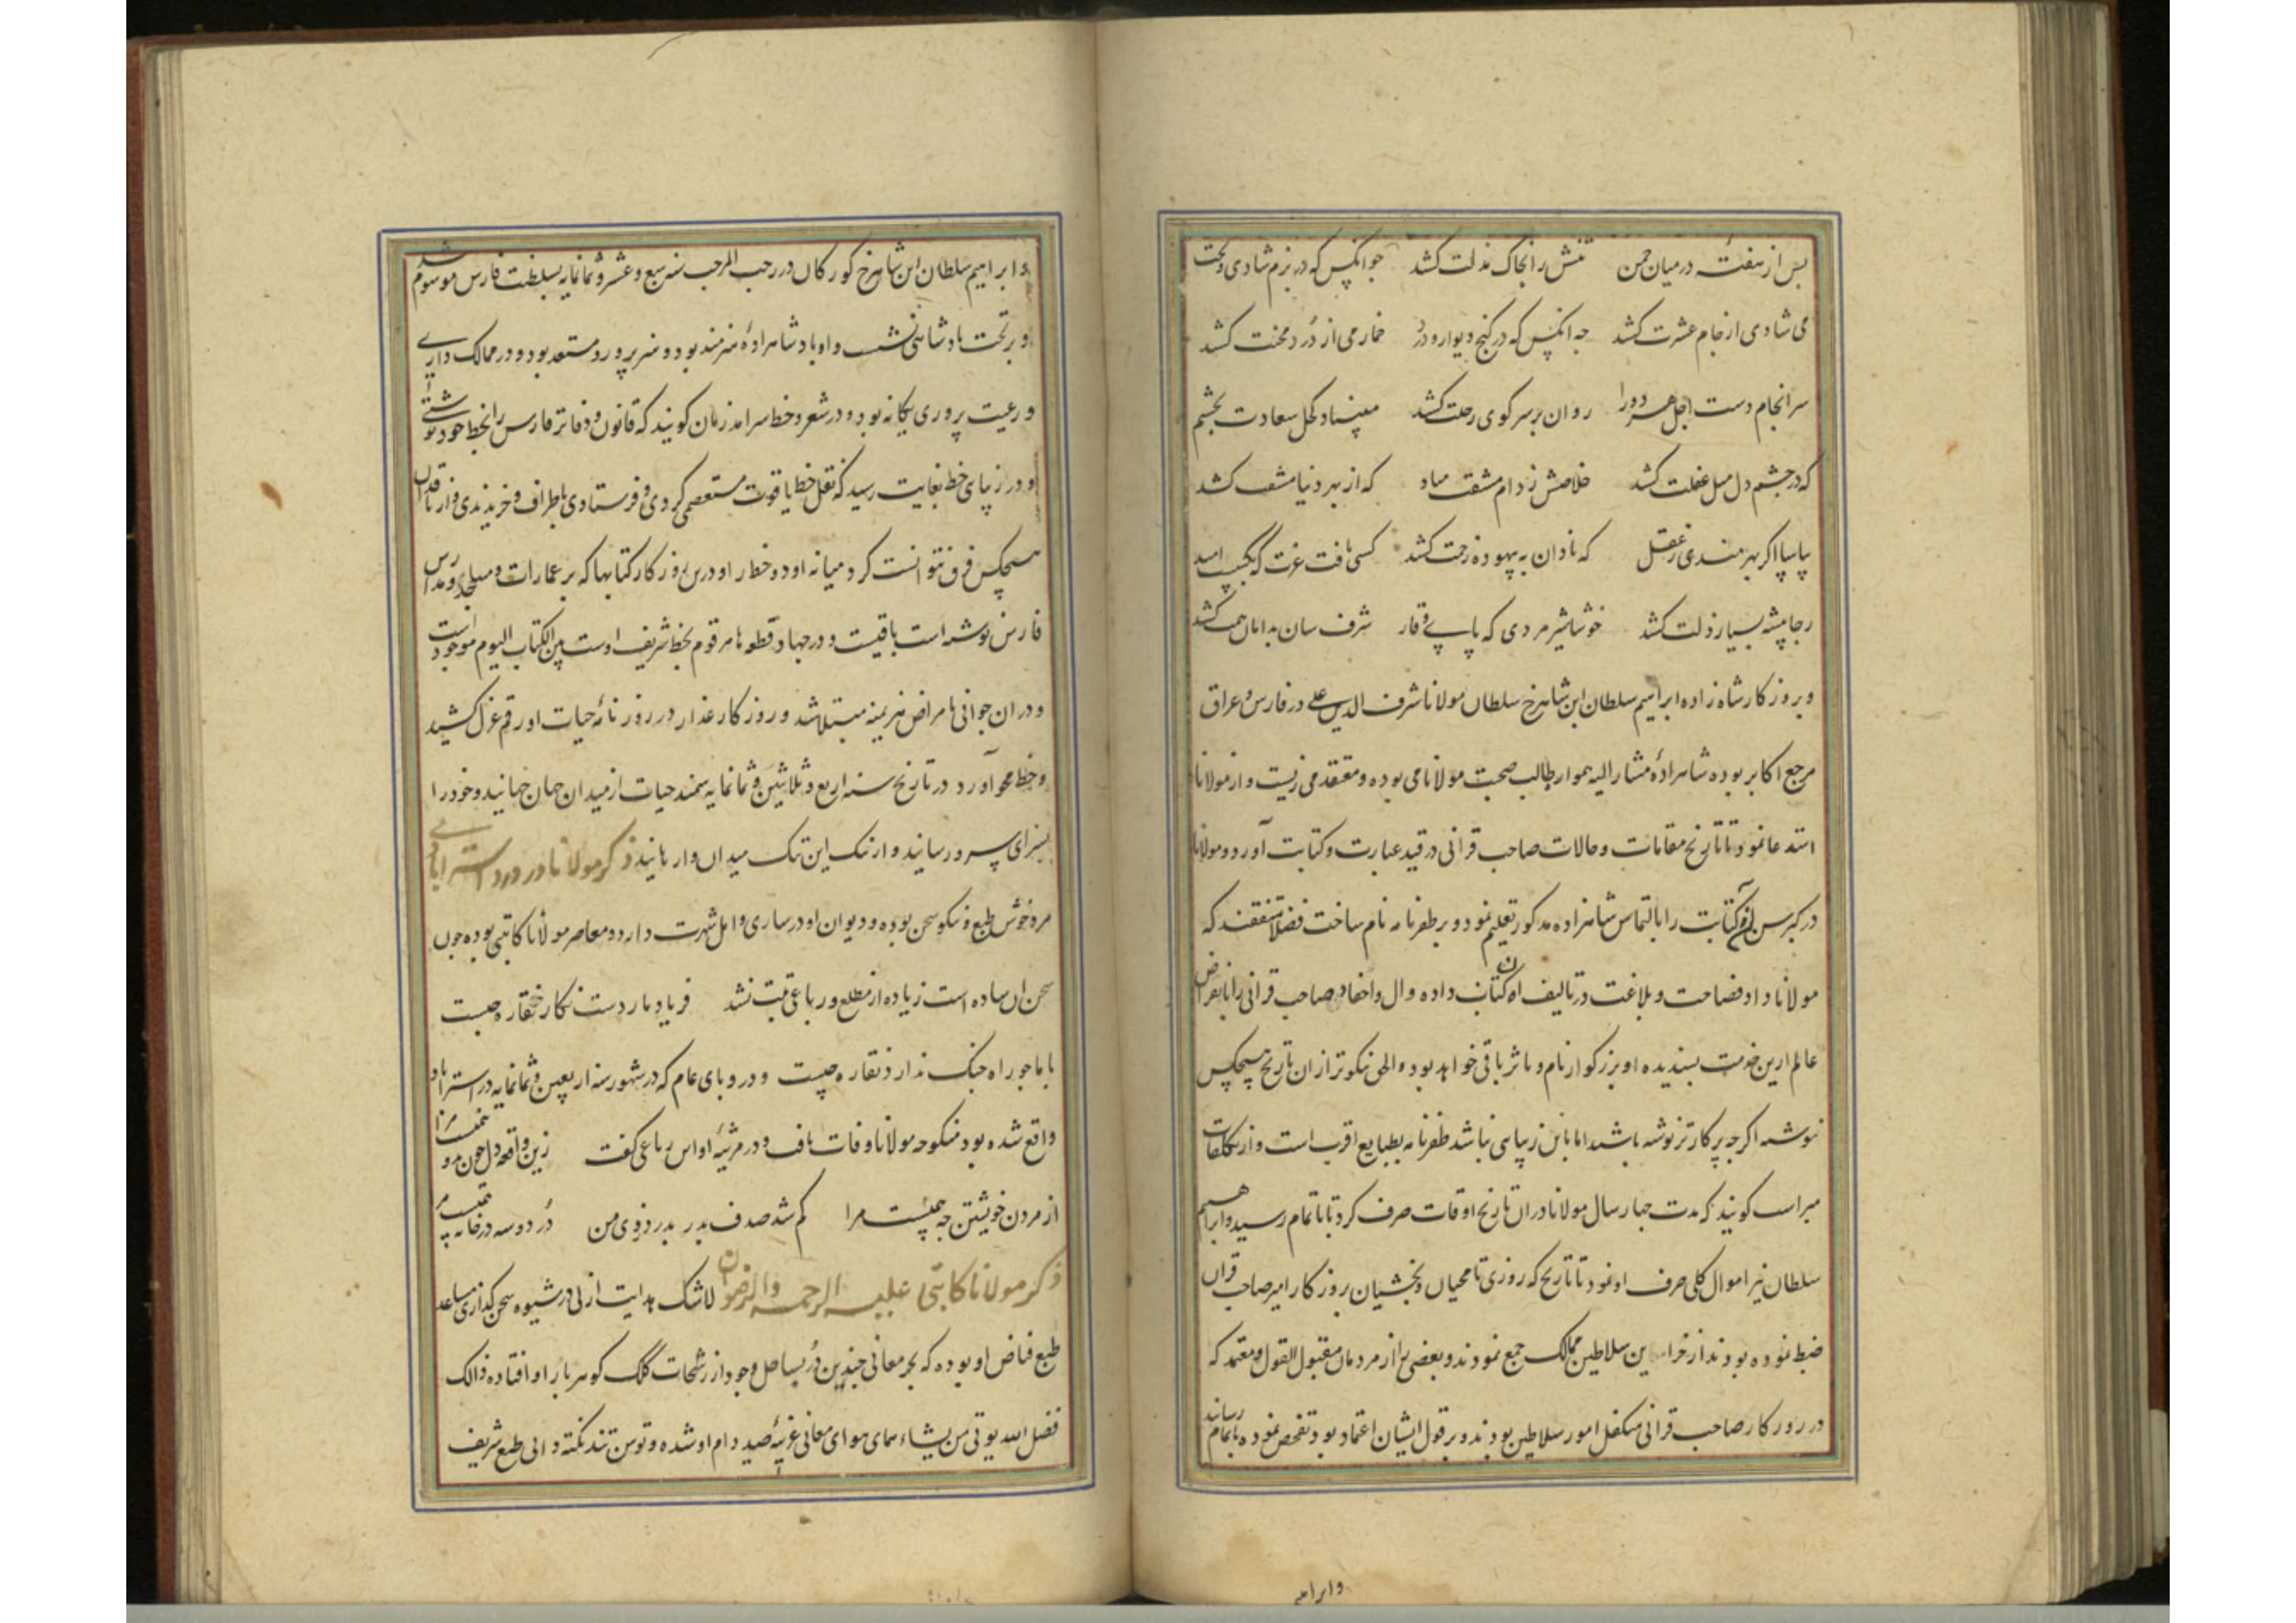 پس از هفته در میان چمن تنش را بخاک مذلت کشد جو انکس که در بزم شادی و بخت
می شادی از جام عشرت کشد چه انکس که در کنج دیوار و در خمار می از درد محنت کشد
سرانجام دست اجل هر دو را روان بر سر کوی رحلت کشد مبیناد کحل سعادت بچشم
که در چشم دل میل غفلت کشد خلاصش ز دام مشقت مباد که از بهر دنیا مشقت کشد
بیا بیا اکر بهره مندی ز عقل که نادان به بیهوده زحمت کشد کسی یافت عزت که بکسب امید
رجا پیشه بسیار ذلت کشد خوشا شیر مردی که پای وقار شرف سان بدامان همت کشد
و بروزکار شاه زاده ابراهیم سلطان ابن شاهرخ سلطان مولانا شرف الدین علی در فارس و عراق
مرجع اکابر بوده شاهزاده مشار الیه هموار طالب صحبت مولانا می بوده و معتقد می زیست و از مولانا
استدعا نمود تا تاریخ مقامات و حالات صاحب قرانی در قید عبارت و کتابت آورد و مولانا
در کبر سن آن کتابت را بالتماس شاهزاده مذکور تعلیم نمود و بر ظفرنامه نام ساخت فضلا متفقند که
مولانا داد فصاحت و بلاغت در تالیف ان کتاب داده و ال و احفاد صاحب قرانی را تا انقراض
عالم ازین خدمت پسندیده او بزرکوار نام و ماثر باقی خواهد بود و الحق نیکوتر از ان تاریخ هیچکس
نوشته اکرچه پرکارتر نوشته باشند اما باین زیبایی نباشد ظفرنامه بطبایع اقرب است و از تکلفات
مبراست کویند که مدت چهار سال مولانا در ان تاریخ اوقات صرف کرد تا باتمام رسید و ابراهیم
سلطان نیز اموال کلی صرف او نمود تا تاریخ که روزی نامحیان و بخشیان بروزکار امیر صاحب قران
ضبط نموده بودند از خزاین سلاطین ممالک جمع نمودند و بعضی را از مردمان مقبول القول و معتمد که
در روزکار صاحب قرانی متکفل امور سلاطین بودند و بر قول ایشان اعتماد بود تفحص نموده باتمام رسانید
و ابراهیم
و ابراهیم سلطان ابن شاهرخ کورکان در رجب المرجب سنه سبع و عشر و ثمانمایه بسلطنت فارس موسوم شد
و بر تخت پادشاهی نشست و او پادشاهزاده هنرمند بود و هنرپرور و مستعد بود و در ممالک داری
و رعیت پروری یکانه بود و در شعر و خط سرامد زمان کویند که قانون و دفاتر فارس را بخط خود نوشتی
و در زیبای خط بغایت رسید که نقل خط یاقوت مستعصمی کردی و فرستادی باطراف و خریدندی و از ناقدان
هیچکس فرق نتوانست کرد میانه او و خط او درین روزکار کتابها که بر عمارات و مساجد و مدارس
فارس نوشته است باقیست و در جهان قطوه ها مرقوم بخط شریف اوست بین الکتاب الیوم موجود است
و در ان جوانی بامراض مزمنه مبتلا شد و روزکار غدار در روزنامه حیات او رقم عزل کشید
و خط محو آورد در تاریخ سنه اربع و ثلاثین و ثمانمایه سمند حیات از میدان جهان جهانید و خود را
بسرای سرور رسانید و از تنک این تنک میدان وارهانید ذکر مولانا در دزد استرابادی
مرد خوش طبع و نیکو سخن بوده و دیوان او در ساری و امل شهرت دارد و معاصر مولانا کاتبی بوده چون
سخن ان ساده است زیاده از مطلع و رباعی ثبت نشد فریاد مار دست نکار نقاره چیست
با ما چو راه جنک ندارد نقاره چیست و در وبای عام که در شهور سنه اربعین و ثمانمایه در استراباد
واقع شده بود منکوحه مولانا وفات یافت و در مرثیه او این رباعی کفت زین واقعه دل چون بدو نیمست مرا
از مردن خویشتن چه بیمست مرا کم شد صدف بدر بدزدی من در دو سه در خانه یتیمست مرا
ذکر مولانا کاتبی علیه الرحمه والرضوان لاشک هدایت ازلی در شیوه سخن کذاری مساعد
طبع فیاض او بوده که بحر معانی چندین در بساحل وجود از رشحات کلک کوهربار او افتاده ذالک
فضل الله یوتی من یشاء همای هوای معانی غریبه صید دام او شده و توسن تند نکته دانی طبع شریف